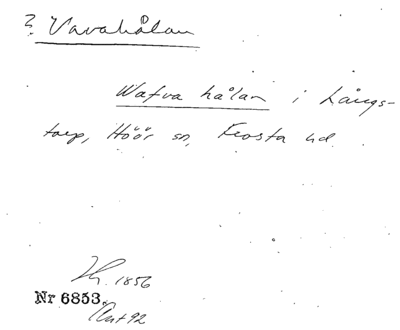 ? Vavahålan
Wafva hålan i Långs-
torp, Höör sn, Frosta hd.
1856
Nr 6853.
92